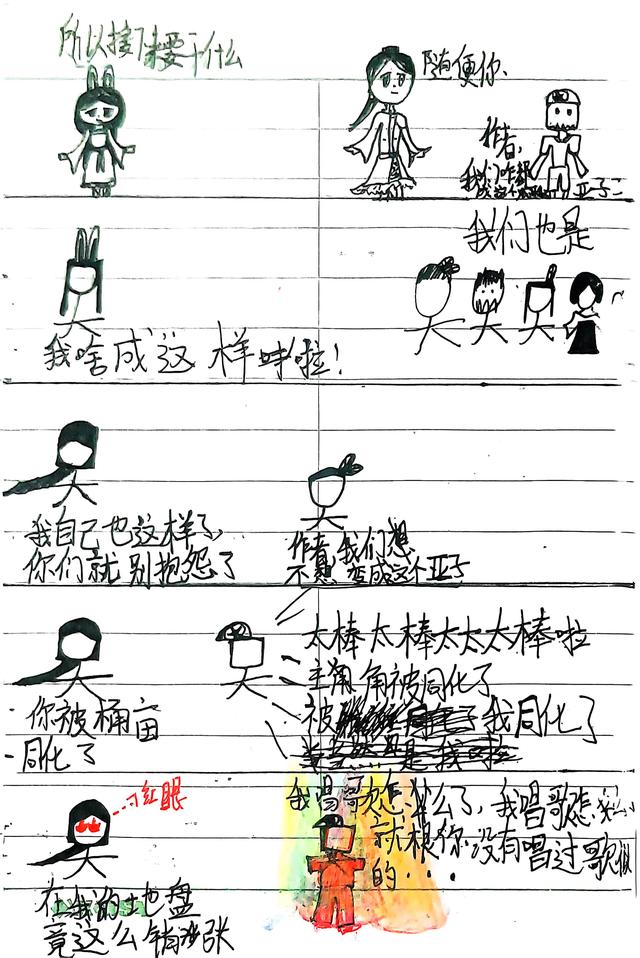 所以接下来要干什么
随便你、
作者,
我们咋都
成这个
亚子
我们也是
我啥成这样哇啦!
我自己也这样了,
你们就别抱怨了
作者,我们想
不想变成这个亚子
太棒太棒太太太棒啦
主角角被同化了
被
我同化了
你被桶亩
同化了
红眼
我唱歌怎么了,我唱歌怎么
就跟你没有唱过歌似
的···
在我的地盘
竟这么嚣张